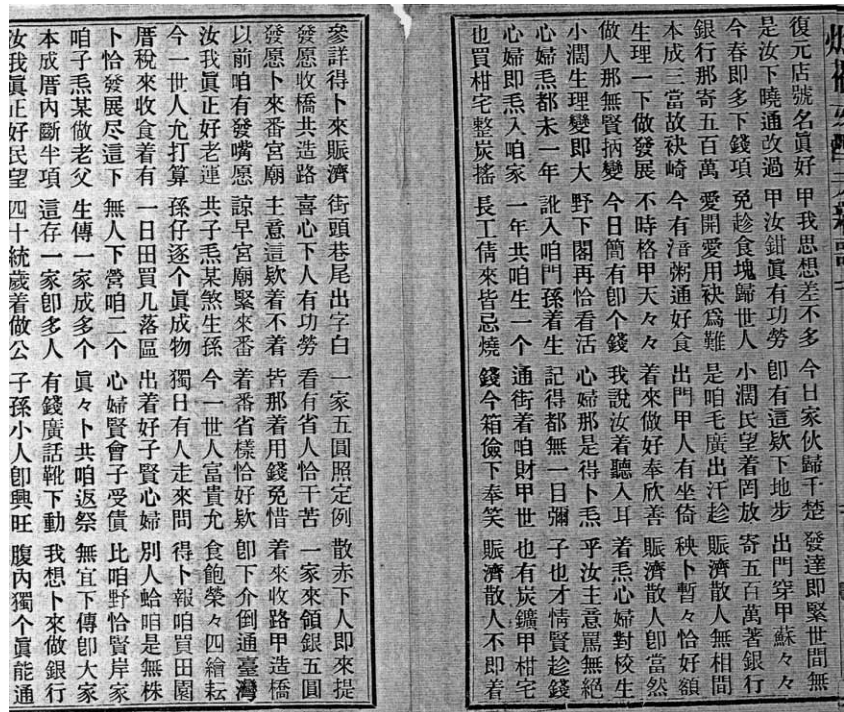 復元店號名眞好 甲我思想差不多 今日家伙歸千楚 發達即緊世間無
是汝下曉通改過 甲汝鉗眞有功勞 卽有這欵下地步 出門穿甲蘇々々
今春即多下錢項 免趁食塊歸世人 小濶民望着罔放 寄五百萬著銀行
銀行那寄五百萬 愛開愛用袂爲難 是咱毛廣出汗趁 賑濟散人無相間
本成三當故袂崎 今有湆粥通好食 出門甲人有坐倚 秧卜暫々恰好額
生理一下做發展 不時格甲天々々 着來做好奉欣善 賑濟散人卽當然
做人那無賢抐變 今日簡有卽个錢 我說汝着聽入耳 着炁心婦對校生
小濶生理變即大 野下閣再恰看活 心婦那是得卜炁 乎汝主意罵無絕
心婦炁都未一年 訛入咱門孫着生 記得都無一日彌 子也才情賢趁錢
心婦即炁入咱家 一年共咱生一个 通街着咱財甲世 也有炭鑛甲柑宅
也買柑宅整炭搖 長工倩來皆忌燒 錢今箱儉下奉笑 賑濟散人不即着
參詳得卜來賑濟 街頭巷尾出字白 一家五圓照定例 散赤下人即來提
發愿收橋共造路 喜心下人有功勞 看有省人恰干苦 一家來領銀五圓
發愿卜來番宮廟 主意這欵着不着 皆那着用錢免惜 着來收路甲造橋
以前咱有發嘴愿 諒早宮廟緊來番 着番省樣恰好欵 卽下介倒通臺灣
汝我眞正好老連 共子炁某煞生孫 今一世人富貴允 食飽榮々四繪耘
今一世人允打算 孫仔逐个眞成物 獨日有人走來問 得卜報咱買田園
厝稅來收食着有 一日田買几落區 出着好子賢心婦 別人蛤咱是無株
卜恰發展尽這下 無人下營咱二个 心婦賢會子受債 比咱野恰賢岸家
咱子炁某做老父 生傳一家成多个 眞々卜共咱返祭 無宜下傳卽大家
本成厝內斷半項 這存一家卽多人 有錢廣話靴下動 我想卜來做銀行
汝我眞正好民望 四十統歲着做公 子孫小人卽興旺 腹內獨个眞能通